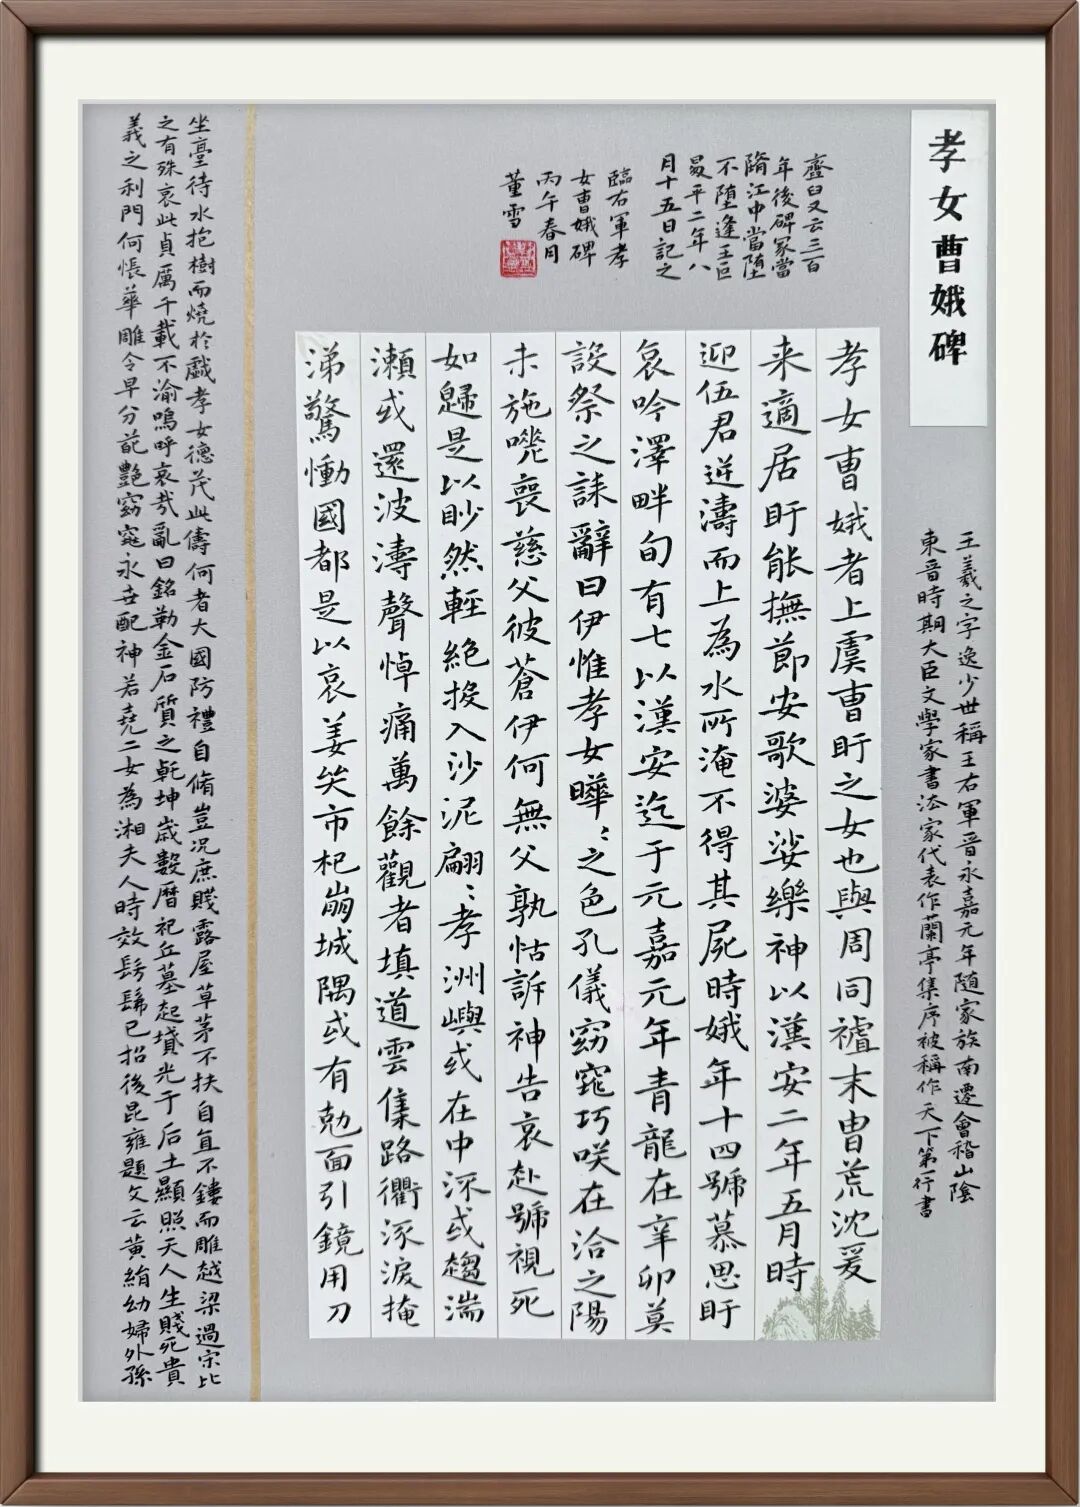 孝女曹娥碑
王羲之字逸少世稱王右軍晉永嘉元年隨家族南遷會稽山陰
東晉時期大臣文學家書法家代表作蘭亭集序被稱作天下第一行書
孝女曹娥者上虞曹盱之女也與周同禮末曹荒沈爰
来適居盱能撫節安歌婆娑樂神以漢安二年五月時
迎伍君逆濤而上為水所淹不得其屍時娥年十四號慕思盱
哀吟澤畔旬有七以漢安迄于元嘉元年青龍在辛卯莫
設祭之誄辭曰伊惟孝女曄〻之色孔儀窈窕巧咲在洽之陽
未施嗟喪慈父彼蒼伊何無父孰怙訴神告哀赴號視死
如歸是以眇然輕絕投入沙泥翩〻孝洲嶼或在中流或趨湍
瀨或還波濤聲悼痛萬餘觀者填道雲集路衢流淚掩
涕驚慟國都是以哀姜哭市杞崩城隅或有勊面引鏡用刀
坐臺待水抱樹而燒於戲孝女德茂此儔何者大國防禮自脩豈况庶賤露屋草茅不扶自直不鏤而雕越梁過宗比
之有殊哀此貞厲千載不渝嗚呼哀哉亂曰銘勒金石質之乾坤歲數曆祀丘墓起墳光于后土顯照天人生賤死貴
義之利門何悵華雕令早分葩艷窈窕永世配神若堯二女為湘夫人時效髣髴已招後昆雍題文云黃絹幼婦外孫
齏臼又云三百
年後碑冢當
隋江中當墮
不墮逢王叵
昜平二年八
月十五日記之
臨右軍孝
女曹娥碑
丙午春月
董雪